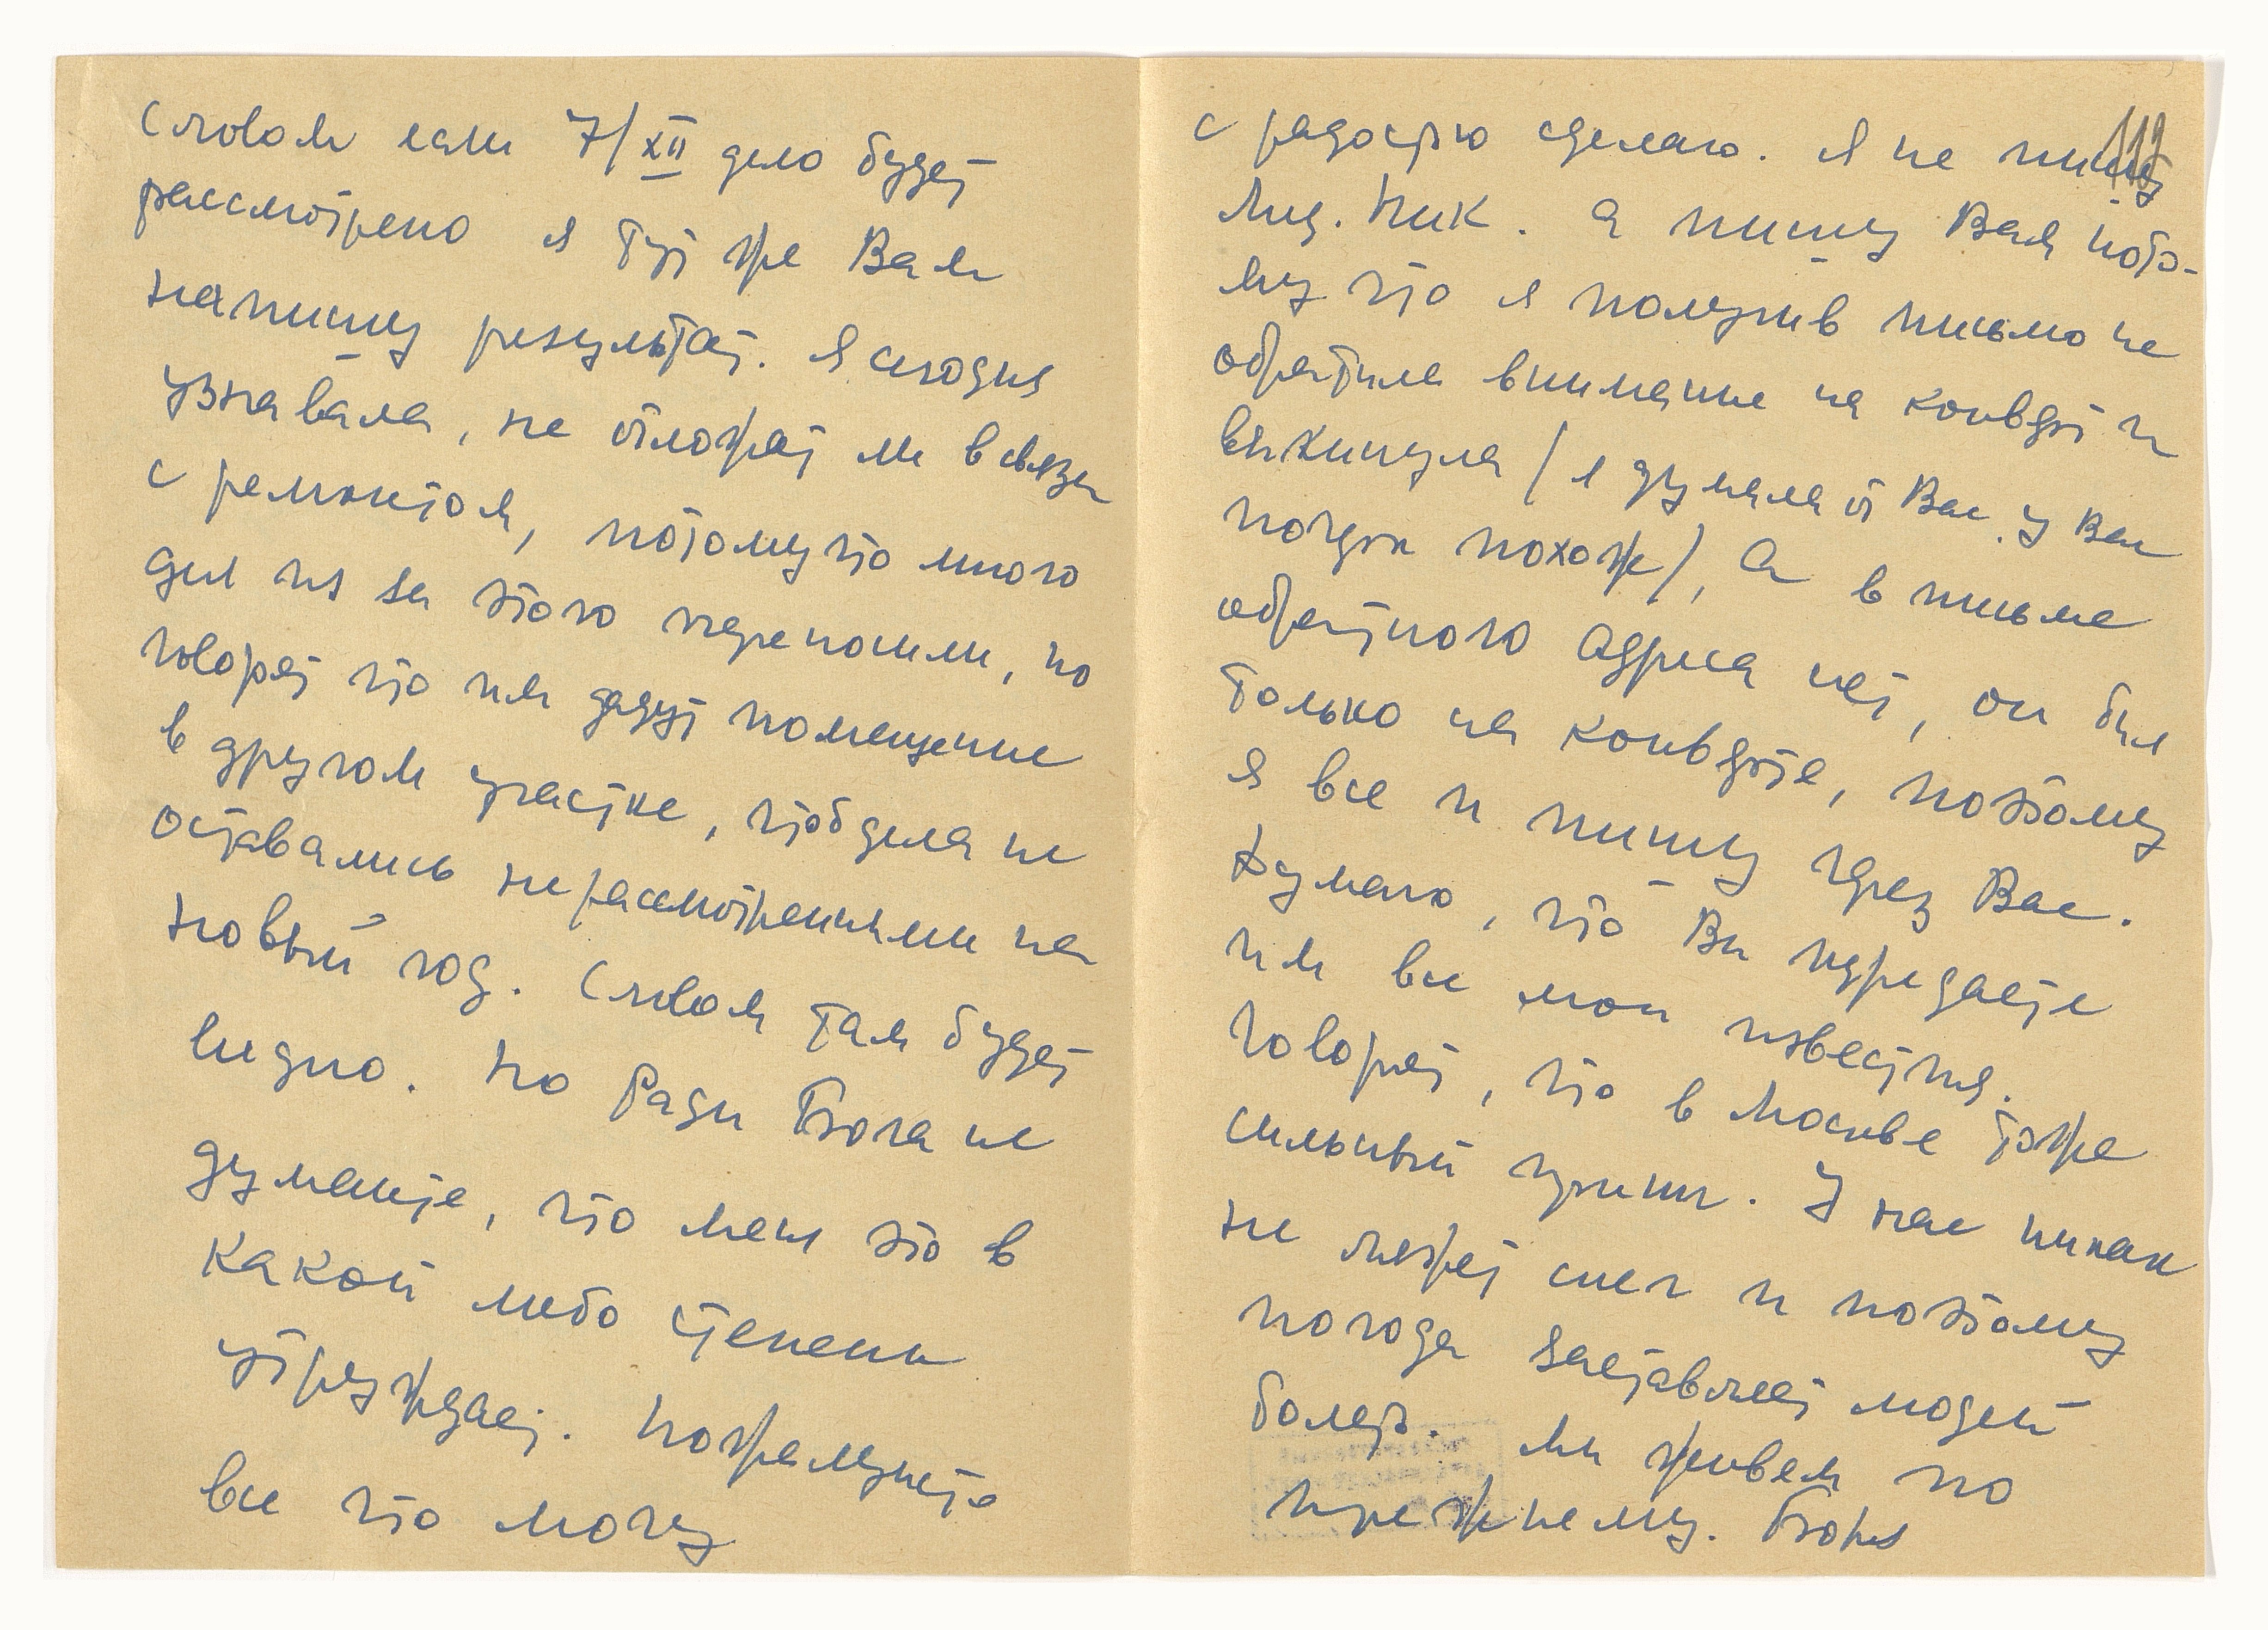 Словом если 7/XII дело будет
рассмотрено я тут же Вам
напишу результат. Я сегодня
узнавала, не отложат ли в связи
с ремонтом, потому что много
дел из за этого переносили, но
говорят что им дадут помещение
в другом участке, чтоб дела не
оставались нерассмотренными на
новый год. Словом там будет
видно. Но Ради Бога не
думайте, что меня это в
какой либо степени
утруждает. Пожалуйста
все что могу
с радостью сделаю. Я не пишу
Лид. Ник. а пишу Вам пото-
му что я получив письмо не
обратила внимание на конверт и
выкинула /я думала от Вас у Вас
почерк похож/, а в письме
обратного адреса нет, он был
только на конверте, поэтому
я все и пишу через Вас.
Думаю, что Вы передаете
им все мои известия.
Говорят, что в Москве тоже
сильный грипп. У нас никак
не ляжет снег и поэтому
погода заставляет людей
болеть. Мы живем по
прежнему. Боря